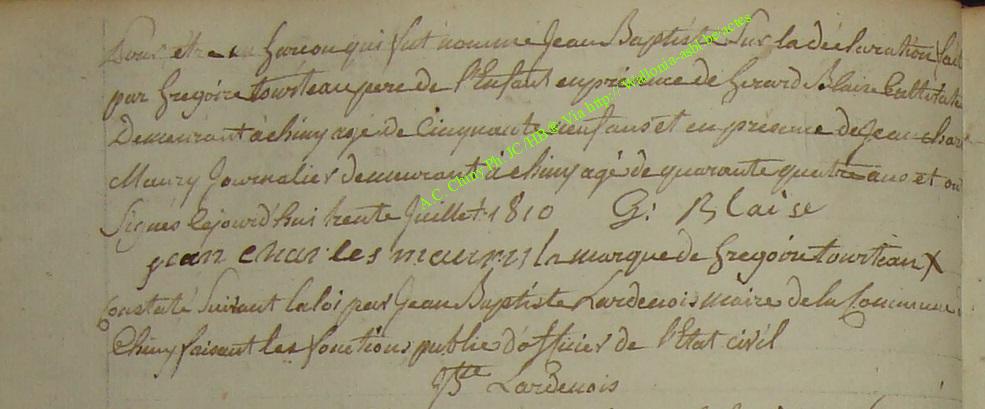 pour être un garcon qui fut nommé Jean Baptiste Sur la déclaration fait
par gregoire tourteau pere de l'Enfant en présence de Gerard Blaise
Demeurant à chiny agé de Cinquante neuf ans et en présence de Jean charle
Maury Journalier demeurant à chiny agé de quarante quatre ans et on
Signés cejourd'hui trente Juillet 1810 G: Blaise
jean charles maury la marque de gregoire tourteau X
Constaté Suivant la loi par Jean Baptiste Lardenois maire de la Commune
Chiny faisant les fonctions public d'officier de l'Etat civil
JBte Lardenois
A.C. Chiny Ph JC /HB @ Via http://wallonia-asbl.be/actes